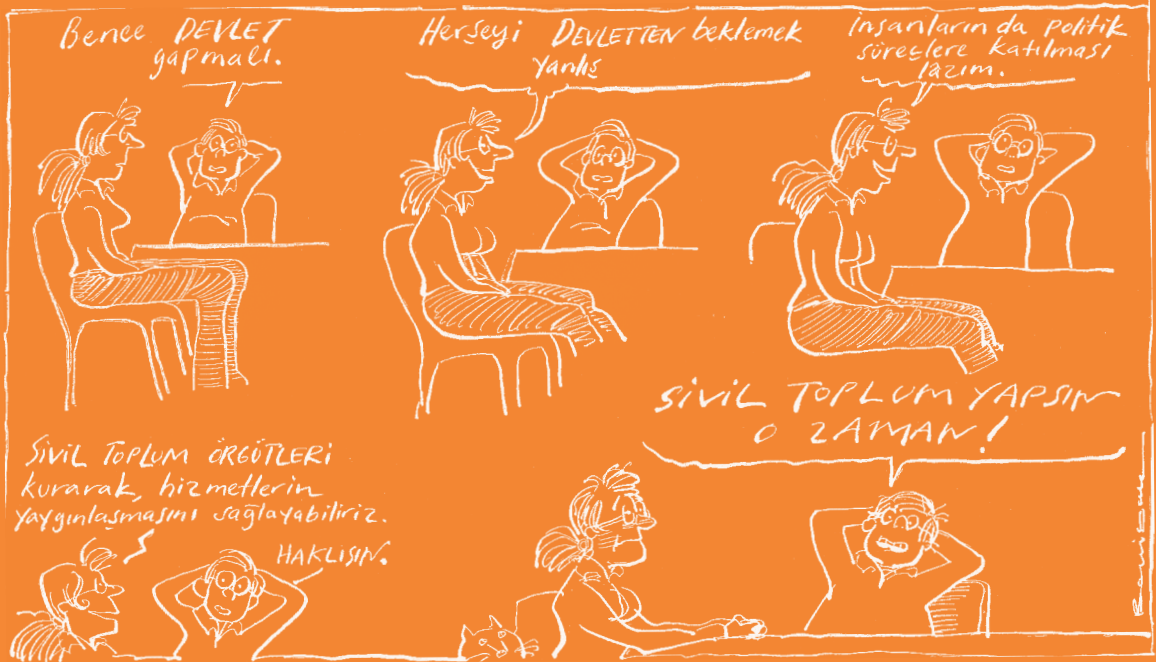 Bence DEVLET
yapmalı.
Herşeyi DEVLETTEN beklemek
yanlış
İnsanların da politik
süreçlere katılması
lazım.
SİVİL TOPLUM ÖRGÜTLERİ
kurarak, hizmetlerin
yaygınlaşmasını sağlayabiliriz.
HAKLISIN.
SİVİL TOPLUM YAPSIN
O ZAMAN!